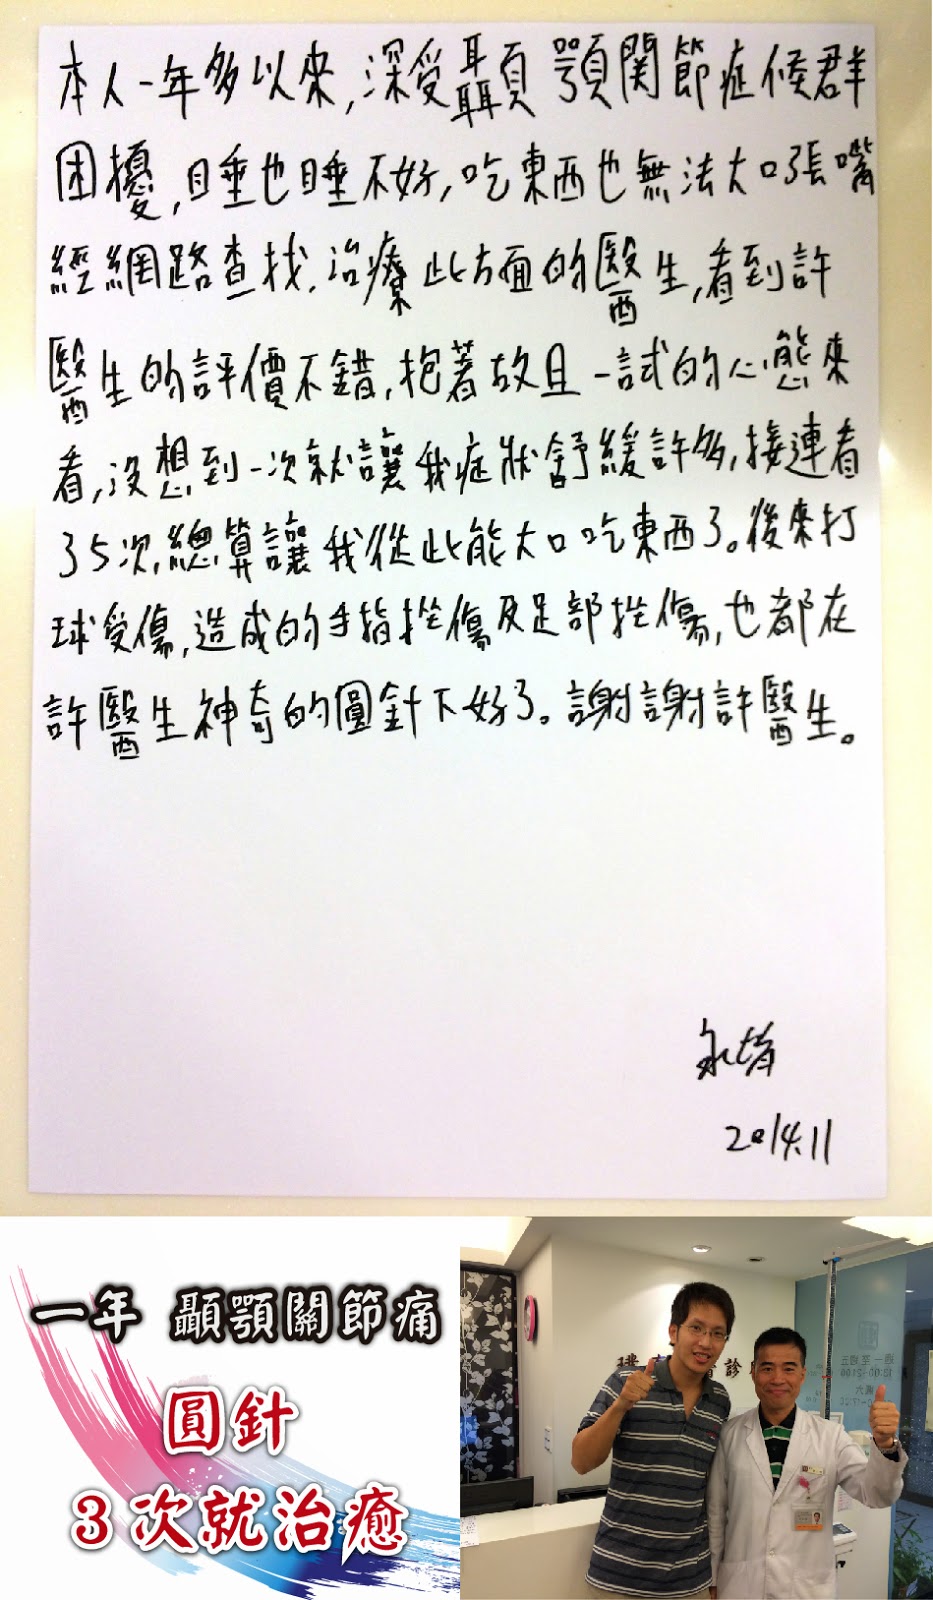 本人一年多以來,深受顳顎關節症候群
困擾,睡也睡不好,吃東西也無法大口張嘴
經網路查找,治療此方面的醫生,看到許
醫生的評價不錯,抱著故且一試的心態來
看,沒想到一次就讓我症狀舒緩許多,接連看
35次,總算讓我從此能大口吃東西了。後來打
球受傷,造成的手指挫傷及足部挫傷,也都在
許醫生神奇的圓針下好了。謝謝許醫生。
2014.11
一年 顳顎關節痛
圓針
3次就治癒